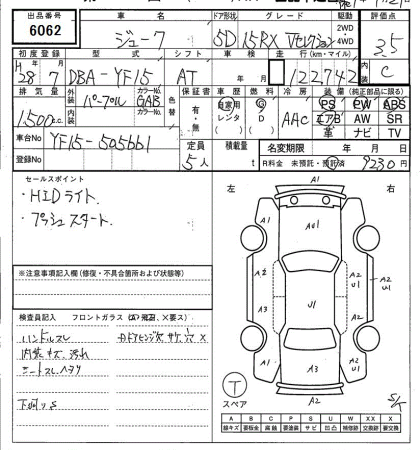 出品番号 車名 ドア形状 グレード 駆動 評価点
6062 ジューク 5D 15RX Vセレクション 2WD 4WD 3.5
初度登録 型式 シフト 車検 走行(km・マイル) 内装
H28 7 DBA-YF15 AT 122742 C
排気量 外装 パープル カラーNo. GAB 色替 保証書 車歴 燃料 冷房 装備(純正部品に限る)
1500c.c. 内装 カラーNo. 有・無 自家用 レンタ G D AAC PS PW ABS
エアB AW SR
革 ナビ TV
車台No YF15-505661 定員 積載量 名変期限 年 月 日
登録No 5人 R料金 未預託・預託済 9230円
セールスポイント
・HIDライト
・プッシュスタート
左 右
A1
A1 AU1 A2
A2 U1 A2 U1
A1 A3 A2 U1
A2
T
スペア
S/T
※注意事項記入欄(修復・不具合箇所および状態等)
検査員記入 フロントガラス(A・飛石、X要ス)
ハンドルスレ
内装キズ、汚れ
シートスレ・ヘタリ
下回りS
A B C P S U W X XX
線キズ 要板金 腐蝕 要塗装 サビ 凹凸 補修跡 交換跡 要交換